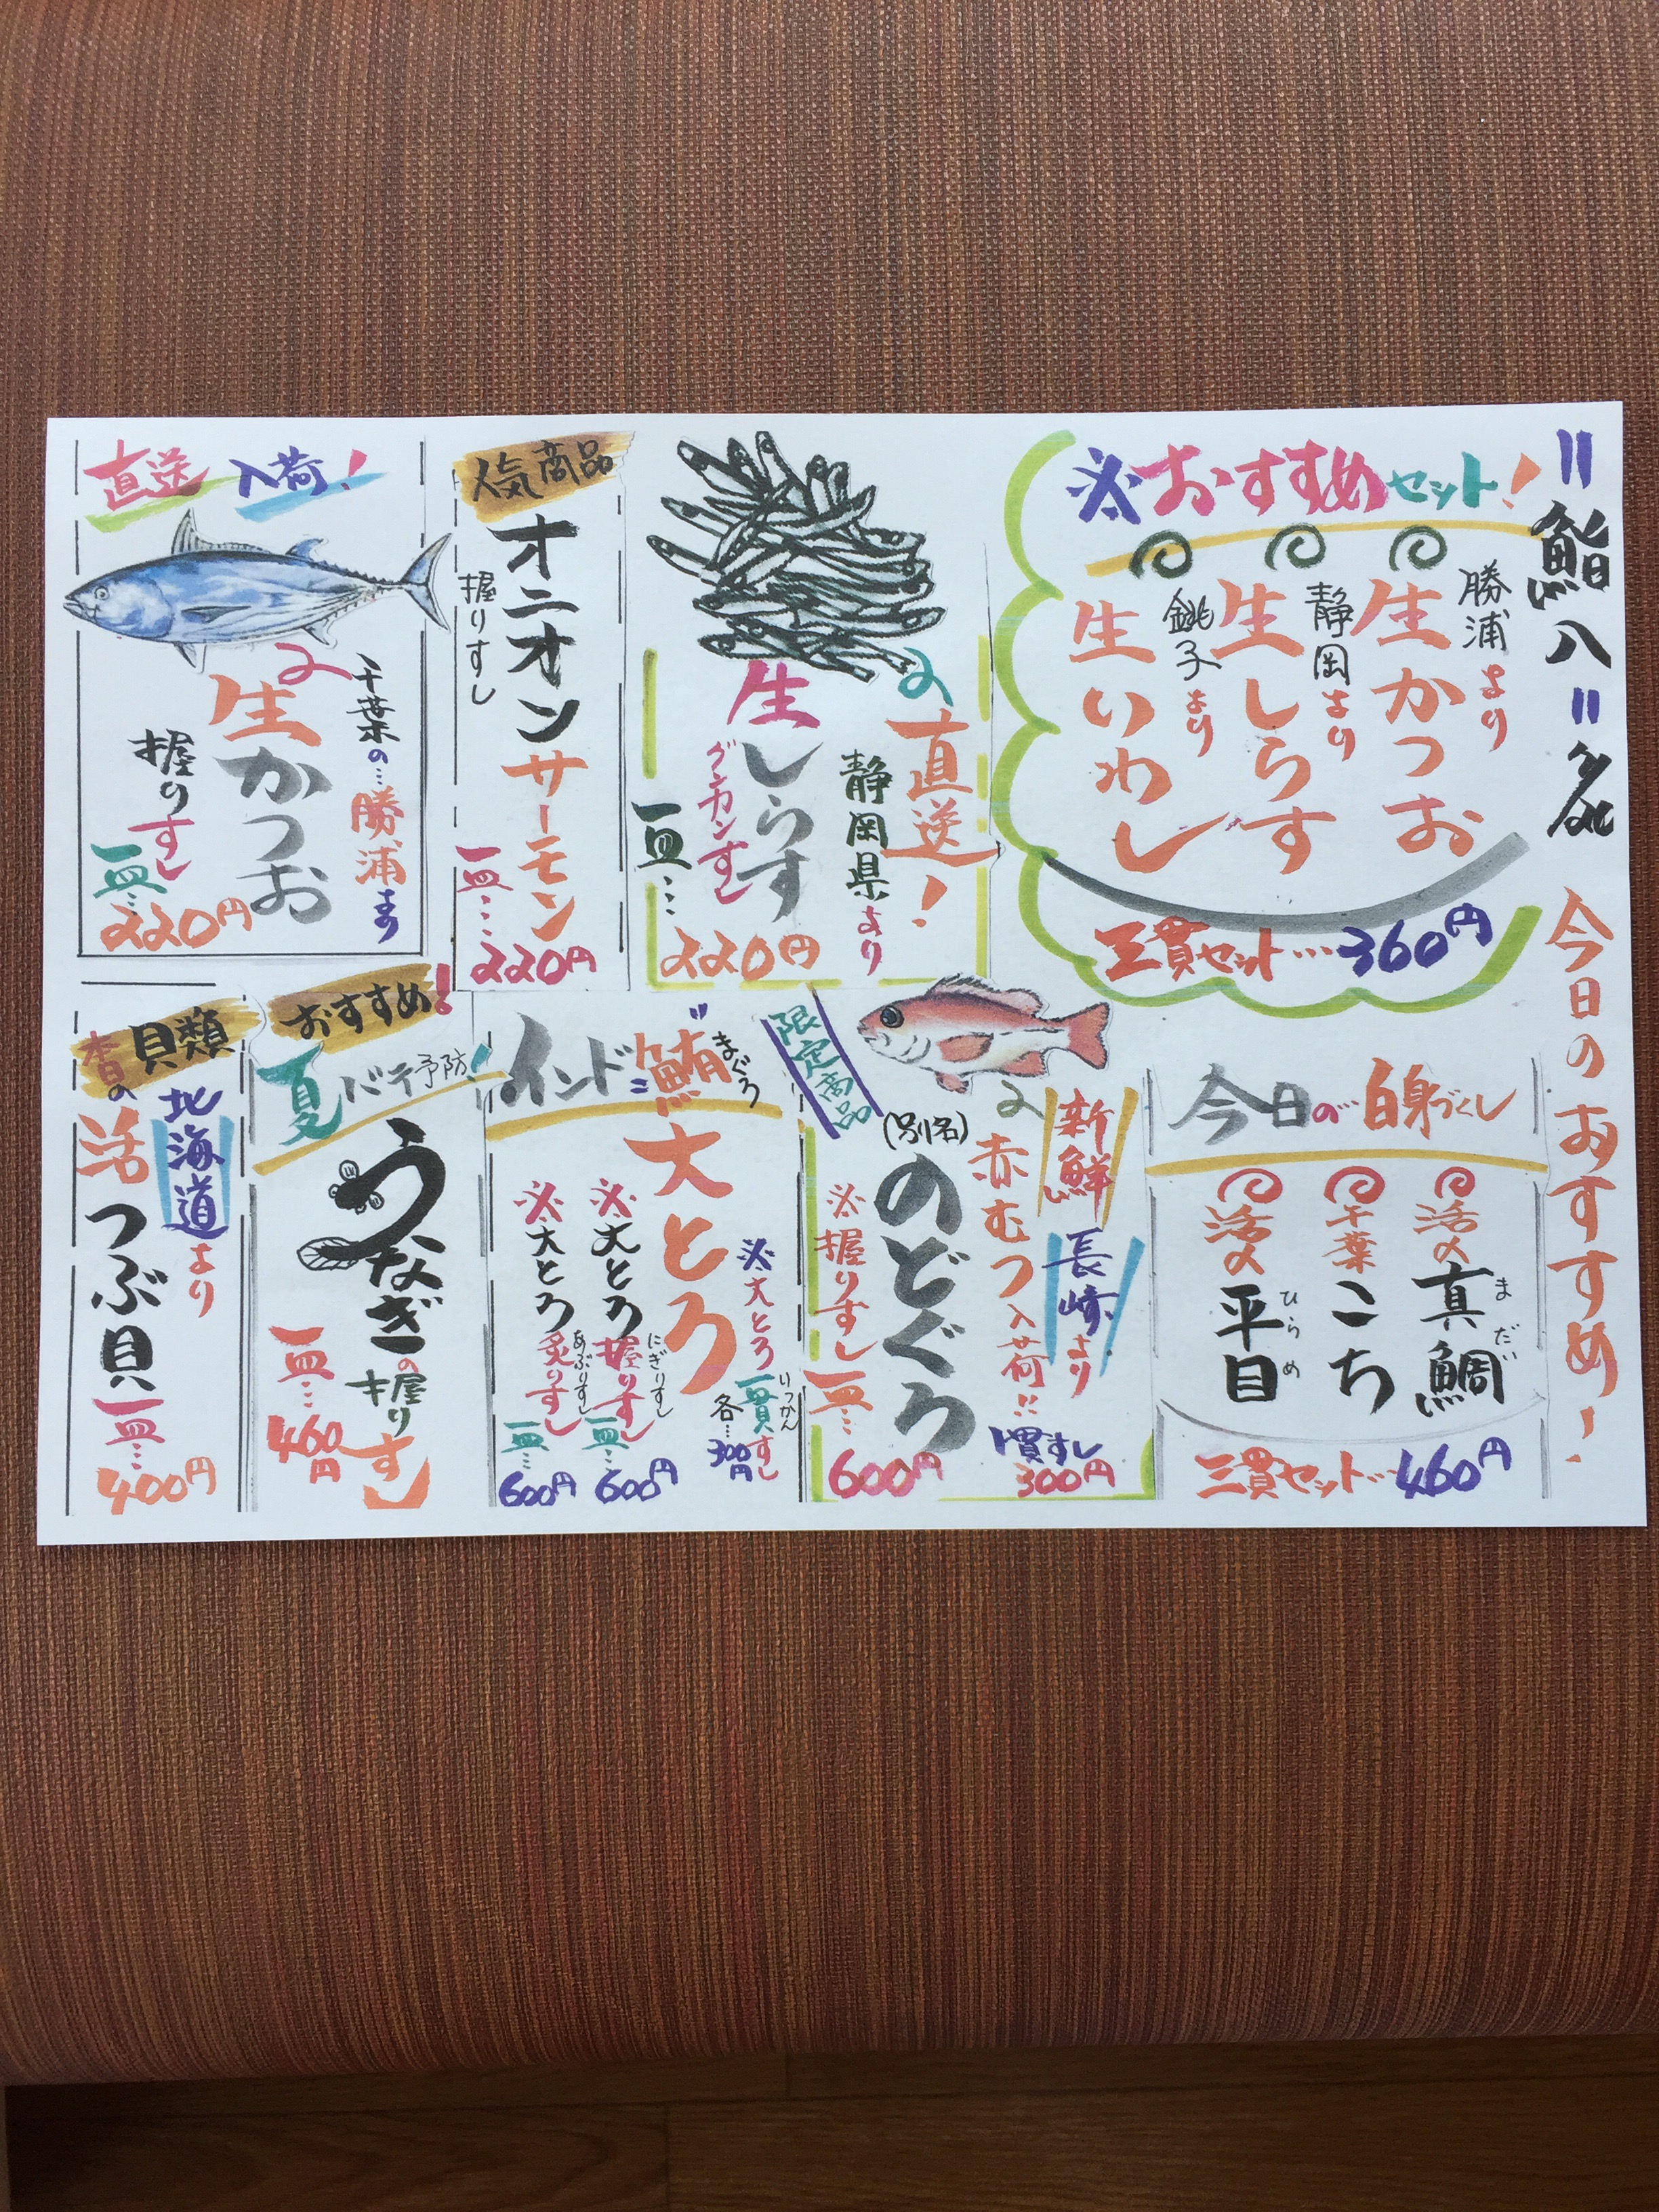 〃鮨八〃
今日のおすすめ！
※おすすめセット！
勝浦より
生かつお
静岡より
生しらす
銚子より
生いわし
三貫セット…360円
直送！
静岡県より
生しらす
グンカンすし
一皿…
220円
人気商品
オニオンサーモン
握りすし
一皿…
220円
直送入荷！
千葉の…勝浦より
生かつお
握りすし
一皿…
220円
今日の…白身づくし
活〆真鯛
まだい
千葉こち
活〆平目
ひらめ
三貫セット…460円
限定商品
新鮮
長崎より
赤むつ入荷!!
(別名)
のどぐろ
※握りすし
一皿…
600円
一貫すし
300円
インド鮪
まぐろ
大とろ
※大とろ一貫すし
いっかん
各…300円
※大とろ握りすし
にぎりすし
一皿…
600円
※大とろ炙りすし
あぶりすし
一皿…
600円
おすすめ！
夏バテ予防！
うなぎの握りすし
一皿…
460円
貝類
北海道より
活つぶ貝
一皿…
400円